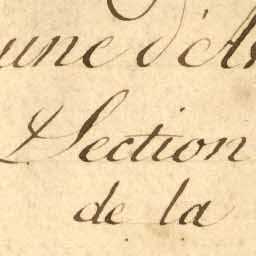 une d'A
Section
de la